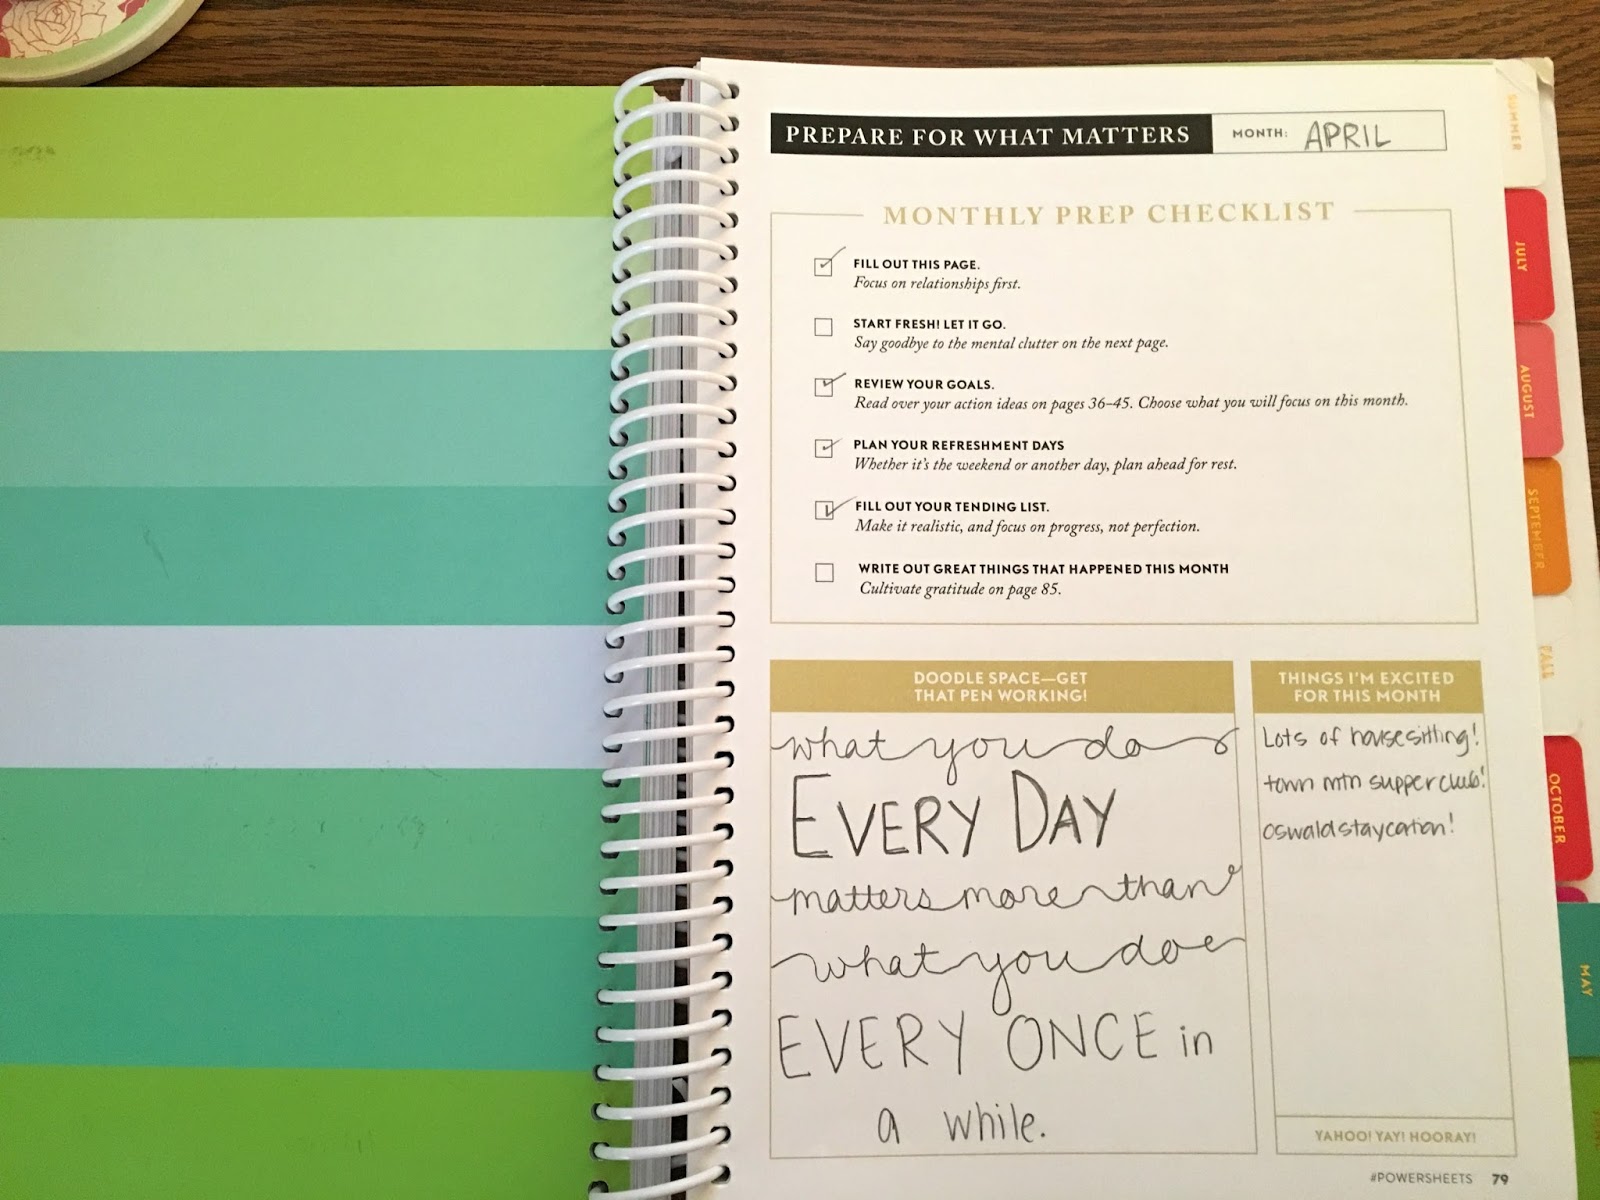 PREPARE FOR WHAT MATTERS
MONTH: APRIL
MONTHLY PREP CHECKLIST
FILL OUT THIS PAGE.
Focus on relationships first.
START FRESH! LET IT GO.
Say goodbye to the mental clutter on the next page.
REVIEW YOUR GOALS.
Read over your action ideas on pages 36–45. Choose what you will focus on this month.
PLAN YOUR REFRESHMENT DAYS
Whether it's the weekend or another day, plan ahead for rest.
FILL OUT YOUR TENDING LIST.
Make it realistic, and focus on progress, not perfection.
WRITE OUT GREAT THINGS THAT HAPPENED THIS MONTH
Cultivate gratitude on page 85.
DOODLE SPACE—GET
THAT PEN WORKING!
what you do
EVERY DAY
matters more than
what you do
EVERY ONCE in
a while.
THINGS I'M EXCITED
FOR THIS MONTH
Lots of housesitting!
town mtn supper club!
oswald staycation!
YAHOO! YAY! HOORAY!
#POWERSHEETS 79
SUMMER
JULY
AUGUST
SEPTEMBER
FALL
OCTOBER
MAY